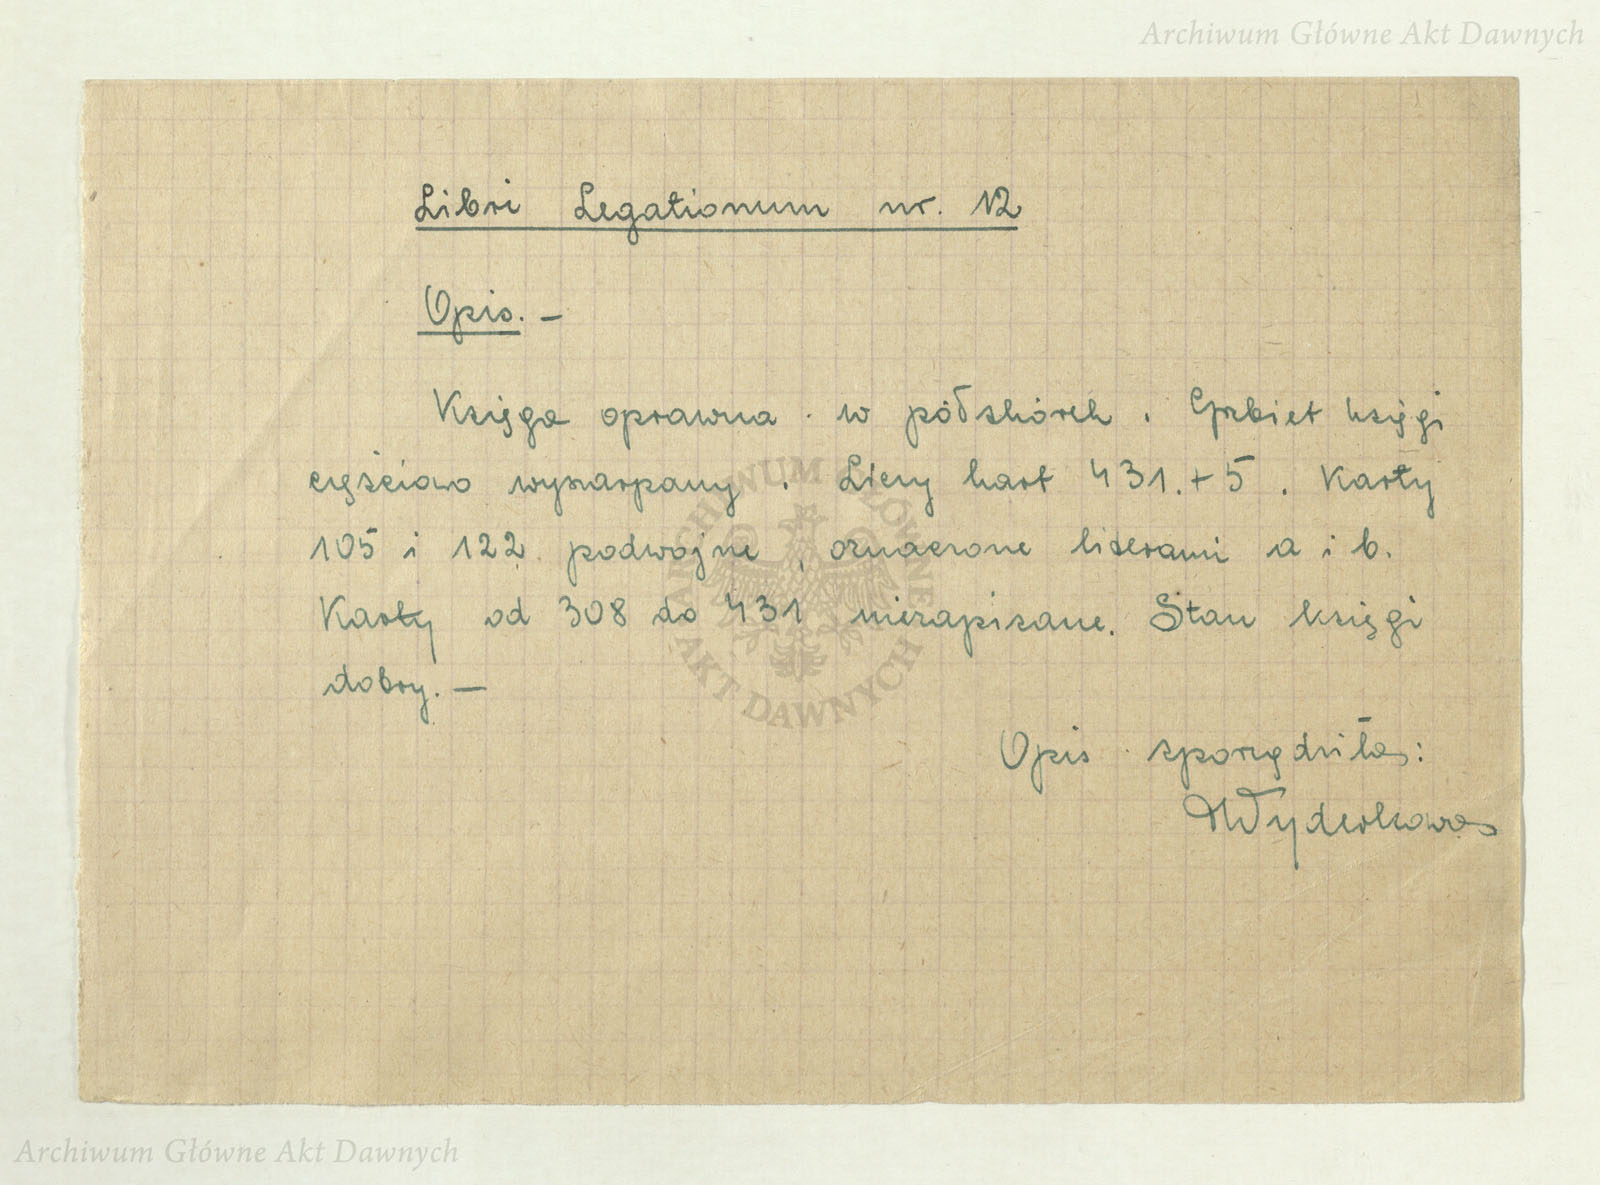 Archiwum Główne Akt Dawnych
Libri Legationum nr. 12
Opis. —
Księga oprawna w półskórek. Grzbiet księgi
częściowo wyszarpany. Liczy kart 431.+5. Karty
105 i 122 podwójne, oznaczone literami a i b.
Karty od 308 do 431 niezapisane. Stan księgi
dobry. —
Opis sporządziła:
MWyderkowa
ARCHIWUM GŁÓWNE
AKT DAWNYCH
Archiwum Główne Akt Dawnych